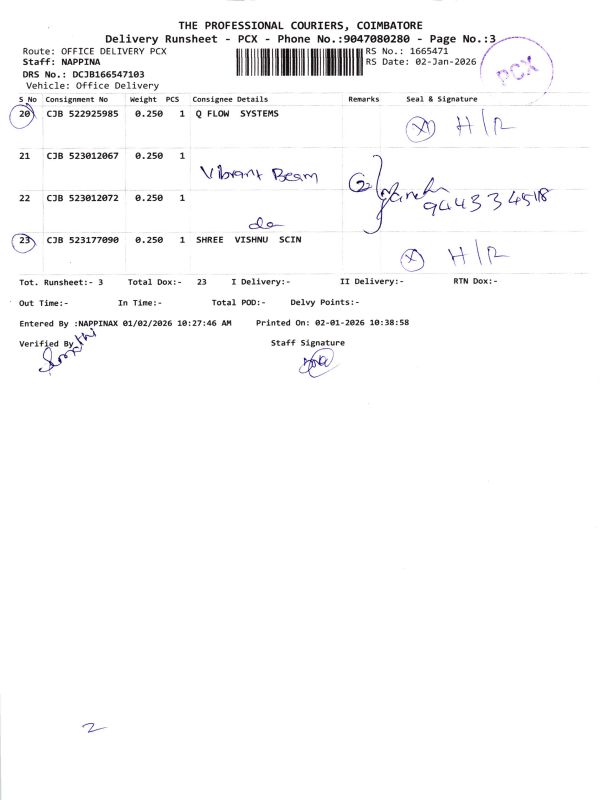 THE PROFESSIONAL COURIERS, COIMBATORE
Delivery Runsheet - PCX - Phone No.:9047080280 - Page No.:3
Route: OFFICE DELIVERY PCX RS No.: 1665471
Staff: NAPPINA RS Date: 02-Jan-2026
DRS No.: DCJB166547103
Vehicle: Office Delivery
PCX
S No Consignment No Weight PCS Consignee Details Remarks Seal & Signature
20 CJB 522925985 0.250 1 Q FLOW SYSTEMS H/R
21 CJB 523012067 0.250 1
Vibrant Beam 2
22 CJB 523012072 0.250 1 9443334518
do
23 CJB 523177090 0.250 1 SHREE VISHNU SCIN H/R
Tot. Runsheet:- 3 Total Dox:- 23 I Delivery:- II Delivery:- RTN Dox:-
Out Time:- In Time:- Total POD:- Delvy Points:-
Entered By :NAPPINAX 01/02/2026 10:27:46 AM Printed On: 02-01-2026 10:38:58
Verified By Staff Signature
2